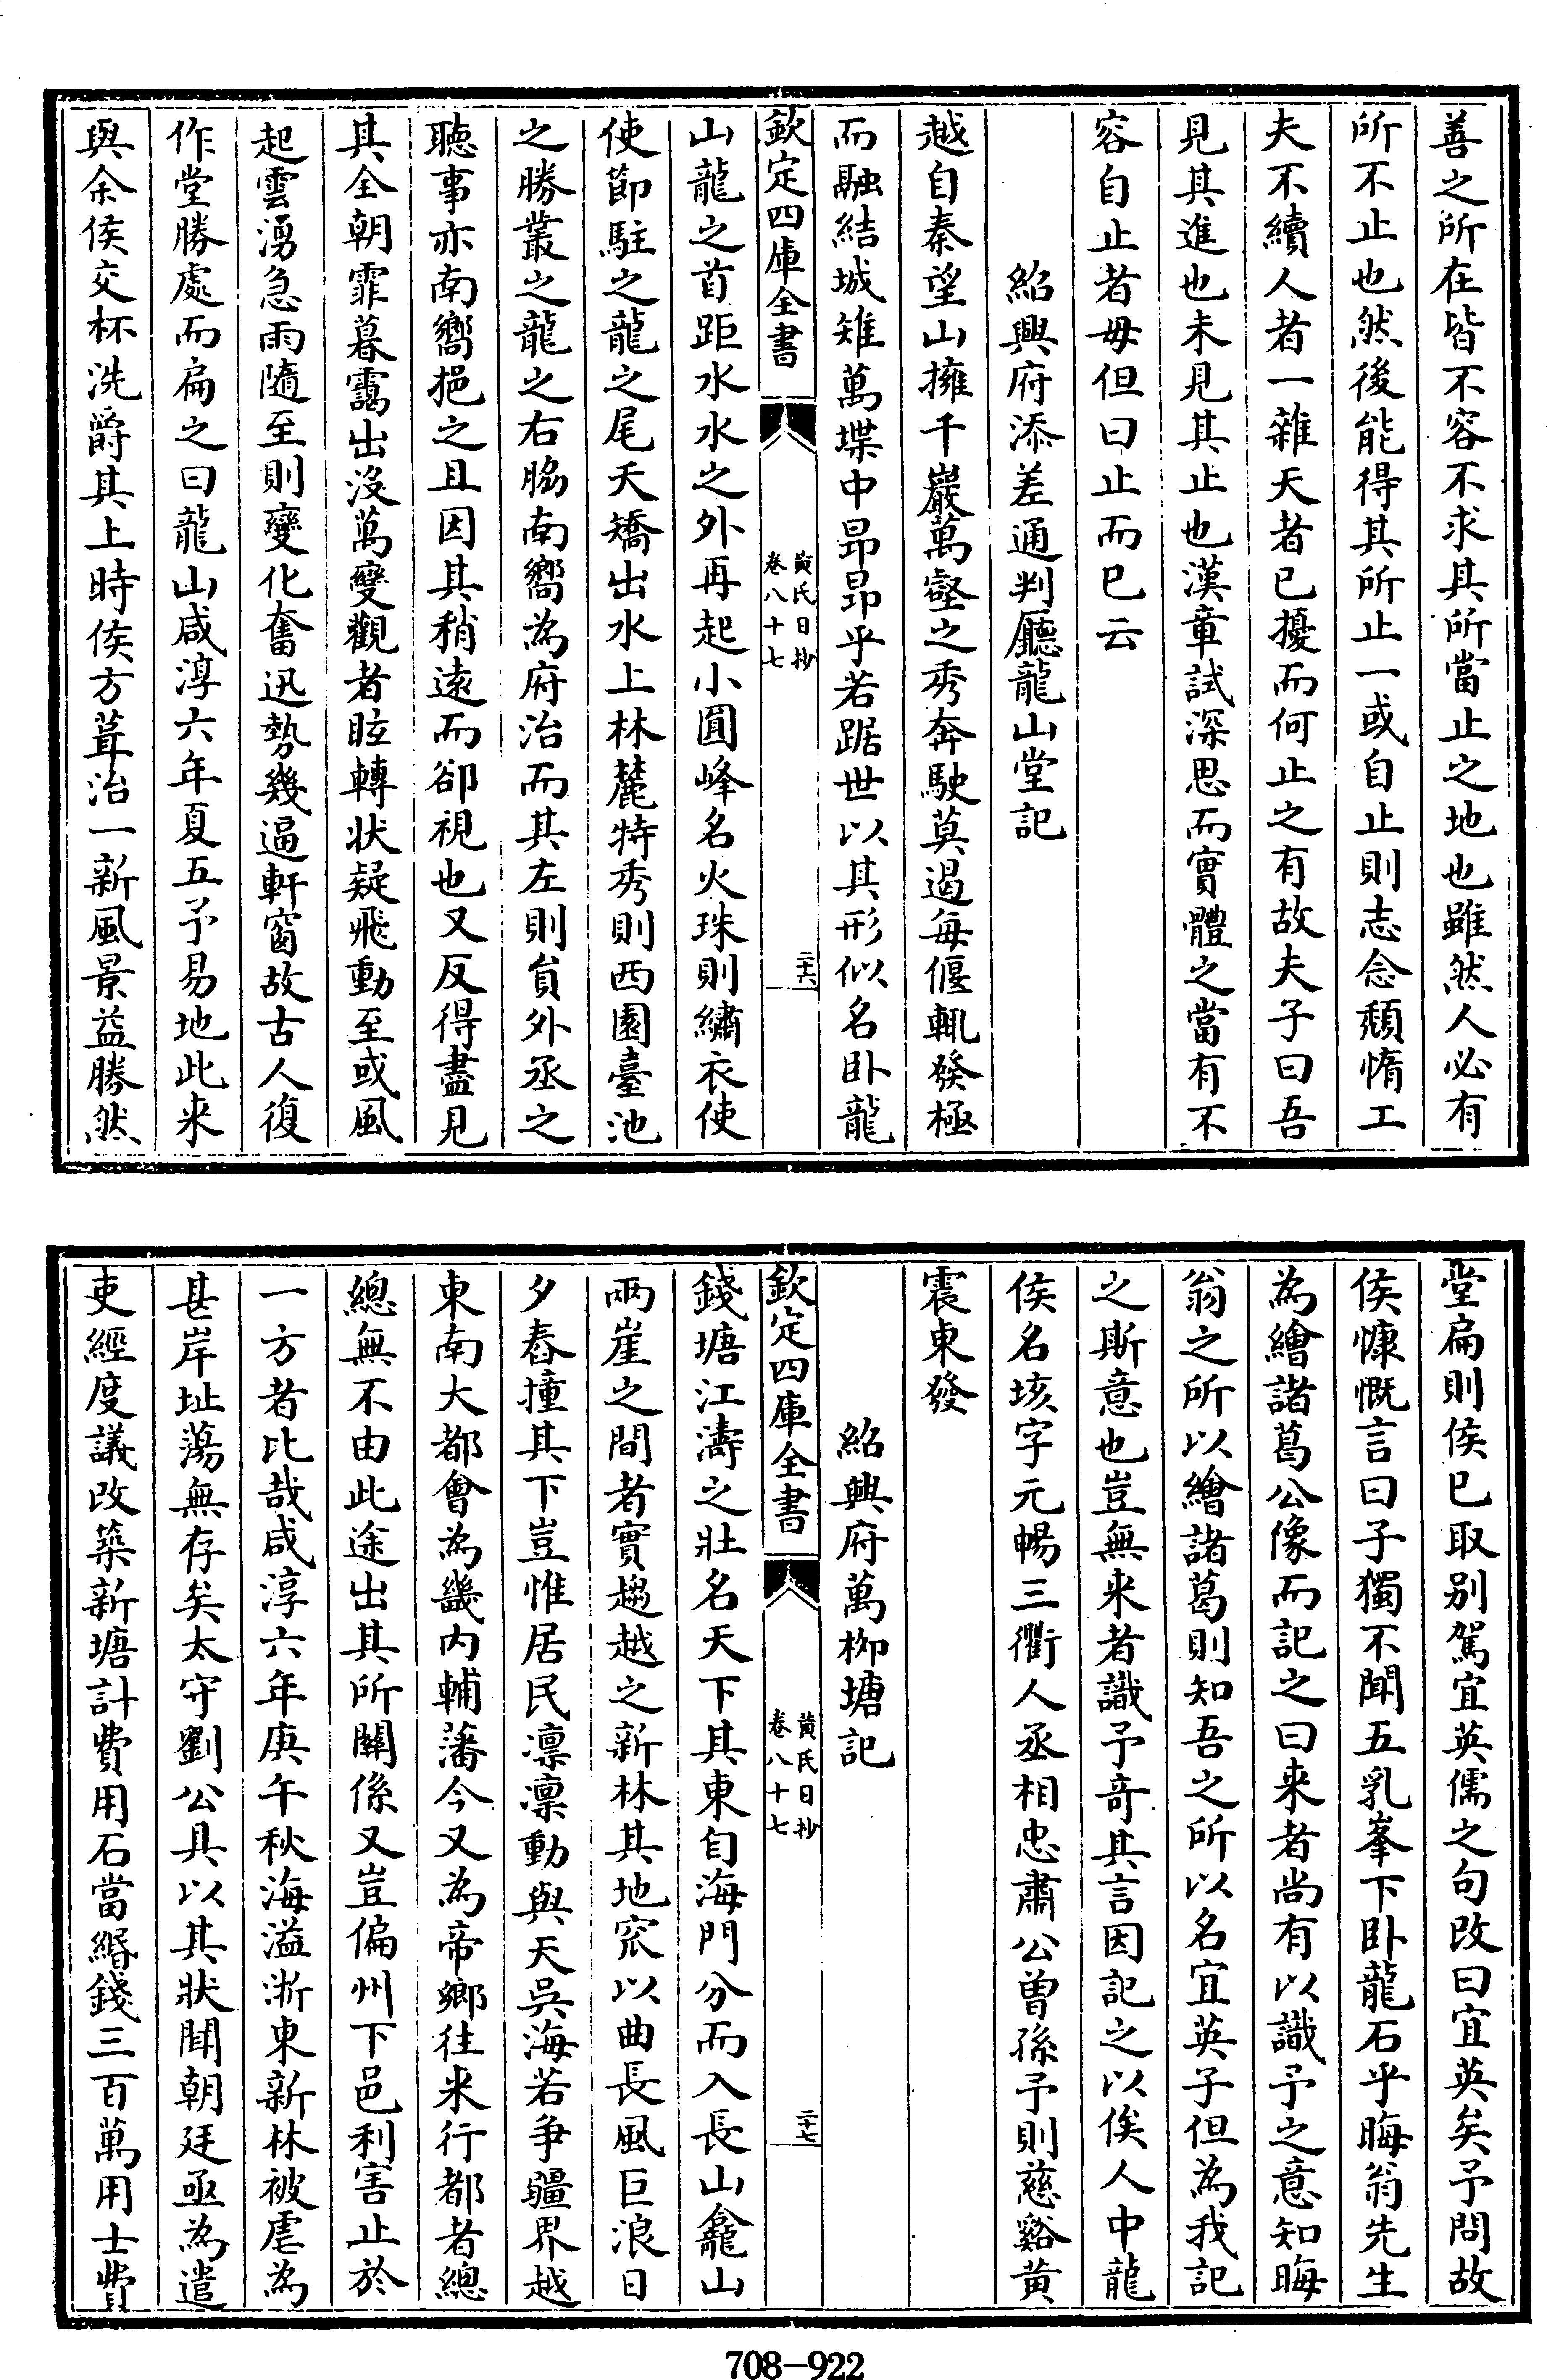 善之所在皆不容不求其所當止之地也雖然人必有
所不止也然後能得其所止一或自止則志念頽惰工
夫不續人者一雜天者已擾而何止之有故夫子曰吾
見其進也未見其止也漢章試深思而實體之當有不
容自止者毋但曰止而已云
紹興府添差通判廳龍山堂記
越自秦望山擁千巖萬壑之秀奔駛莫遏每偃輒發極
而融結城雉萬堞中昻昻乎若踞世以其形似名卧龍
欽定四庫全書
黄氏日抄
卷八十七
二十六
山龍之首距水水之外再起小圓峰名火珠則繡衣使
使節駐之龍之尾夭矯出水上林麓特秀則西園臺池
之勝叢之龍之右脇南嚮為府治而其左則貟外丞之
聽事亦南嚮挹之且因其稍遠而卻視也又反得盡見
其全朝霏暮靄出沒萬變觀者眩轉状疑飛動至或風
起雲湧急雨隨至則變化奮迅勢幾逼軒窗故古人復
作堂勝處而扁之曰龍山咸淳六年夏五予易地此来
與余侯交杯洗爵其上時侯方葺治一新風景益勝然
堂扁則侯已取别駕宜英儒之句改曰宜英矣予問故
侯慷慨言曰子獨不聞五乳峯下卧龍石乎晦翁先生
為繪諸葛公像而記之曰来者尚有以識予之意知晦
翁之所以繪諸葛則知吾之所以名宜英子但為我記
之斯意也豈無来者識予竒其言因記之以俟人中龍
侯名垓字元暢三衢人丞相忠肅公曽孫予則慈谿黄
震東發
紹興府萬栁塘記
欽定四庫全書
黄氏日抄
卷八十七
二十七
錢塘江濤之壯名天下其東自海門分而入長山龕山
兩崖之間者實趨越之新林其地窊以曲長風巨浪日
夕舂撞其下豈惟居民凛凛動與天吳海若爭疆界越
東南大都會為畿内輔藩今又為帝鄉往来行都者總
總無不由此途出其所關係又豈偏州下邑利害止於
一方者比哉咸淳六年庚午秋海溢浙東新林被虐為
甚岸址蕩無存矣太守劉公具以其狀聞朝廷亟為遣
吏經度議改築新塘計費用石當緡錢三百萬用士費
708-922